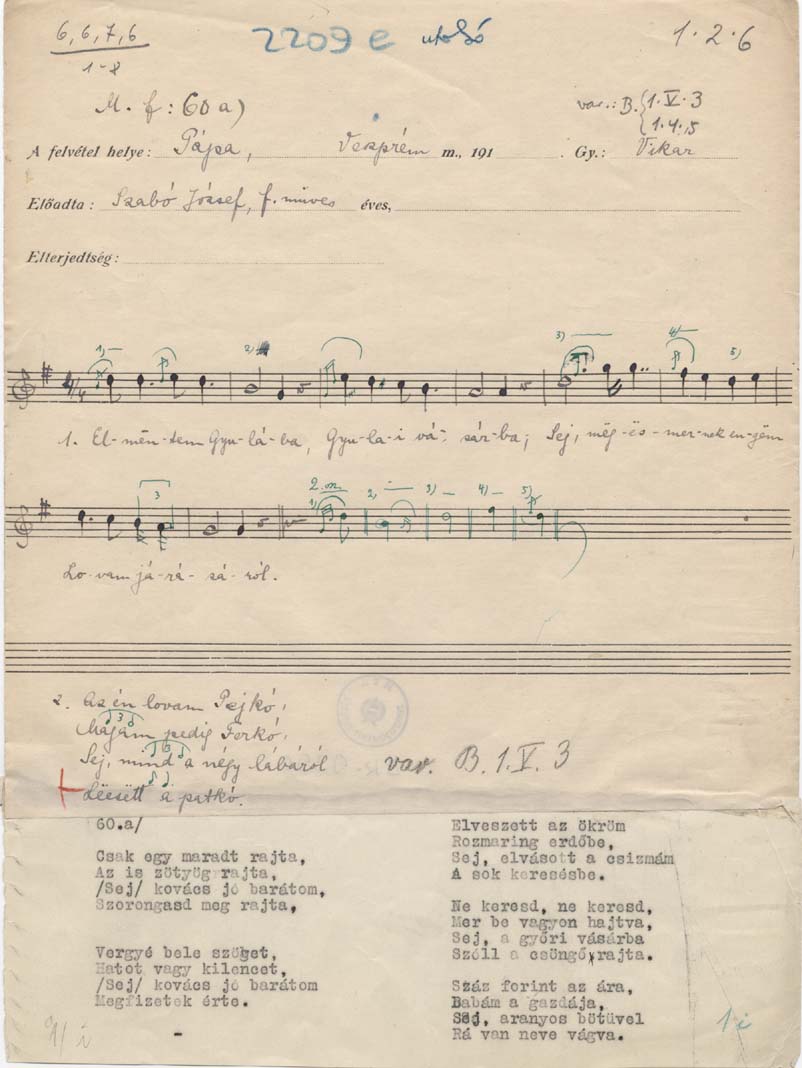 6, 6, 7, 6
1-8
2209 e utolsó
1. 2. 6
M. f: 60 a)
var.: B. {1. V. 3
{1. 4. 5
A felvétel helye: Pápa, Veszprém m., 191 . Gy.: Vikar
Előadta: Szabó József, f. műves éves,
Elterjedtség:
1) 2) 3) 4) 5)
4/4
1. El-mën-tem Gyu-lá-ba, Gyu-la-i vá-sár-ba; Sej, mëg-ës-mer-nek en-gëm
3 2. 1) 2) 3) 4) 5)
Lo-vam já-rá-sá-ról.
2. Az én lovam Pejkó,
Magam pedig Ferkó,
Sej, mind a négy lábáról
Lëesëtt a patkó.
var. B. 1. V. 3
60.a/
Csak egy maradt rajta,
Az is zötyög rajta,
/Sej/ kovács jó barátom,
Szorongasd meg rajta,
Vergyé bele szöget,
Hatot vagy kilencet,
/Sej/ kovács jó barátom
Megfizetek érte.
Elveszett az ökröm
Rozmaring erdőbe,
Sej, elvásott a csizmám
A sok keresésbe.
Ne keresd, ne keresd,
Mer be vagyon hajtva,
Sej, a győri vásárba
Szóll a csöngő rajta.
Száz forint az ára,
Babám a gazdája,
Sej, aranyos bötüvel
Rá van neve vágva.
1 i